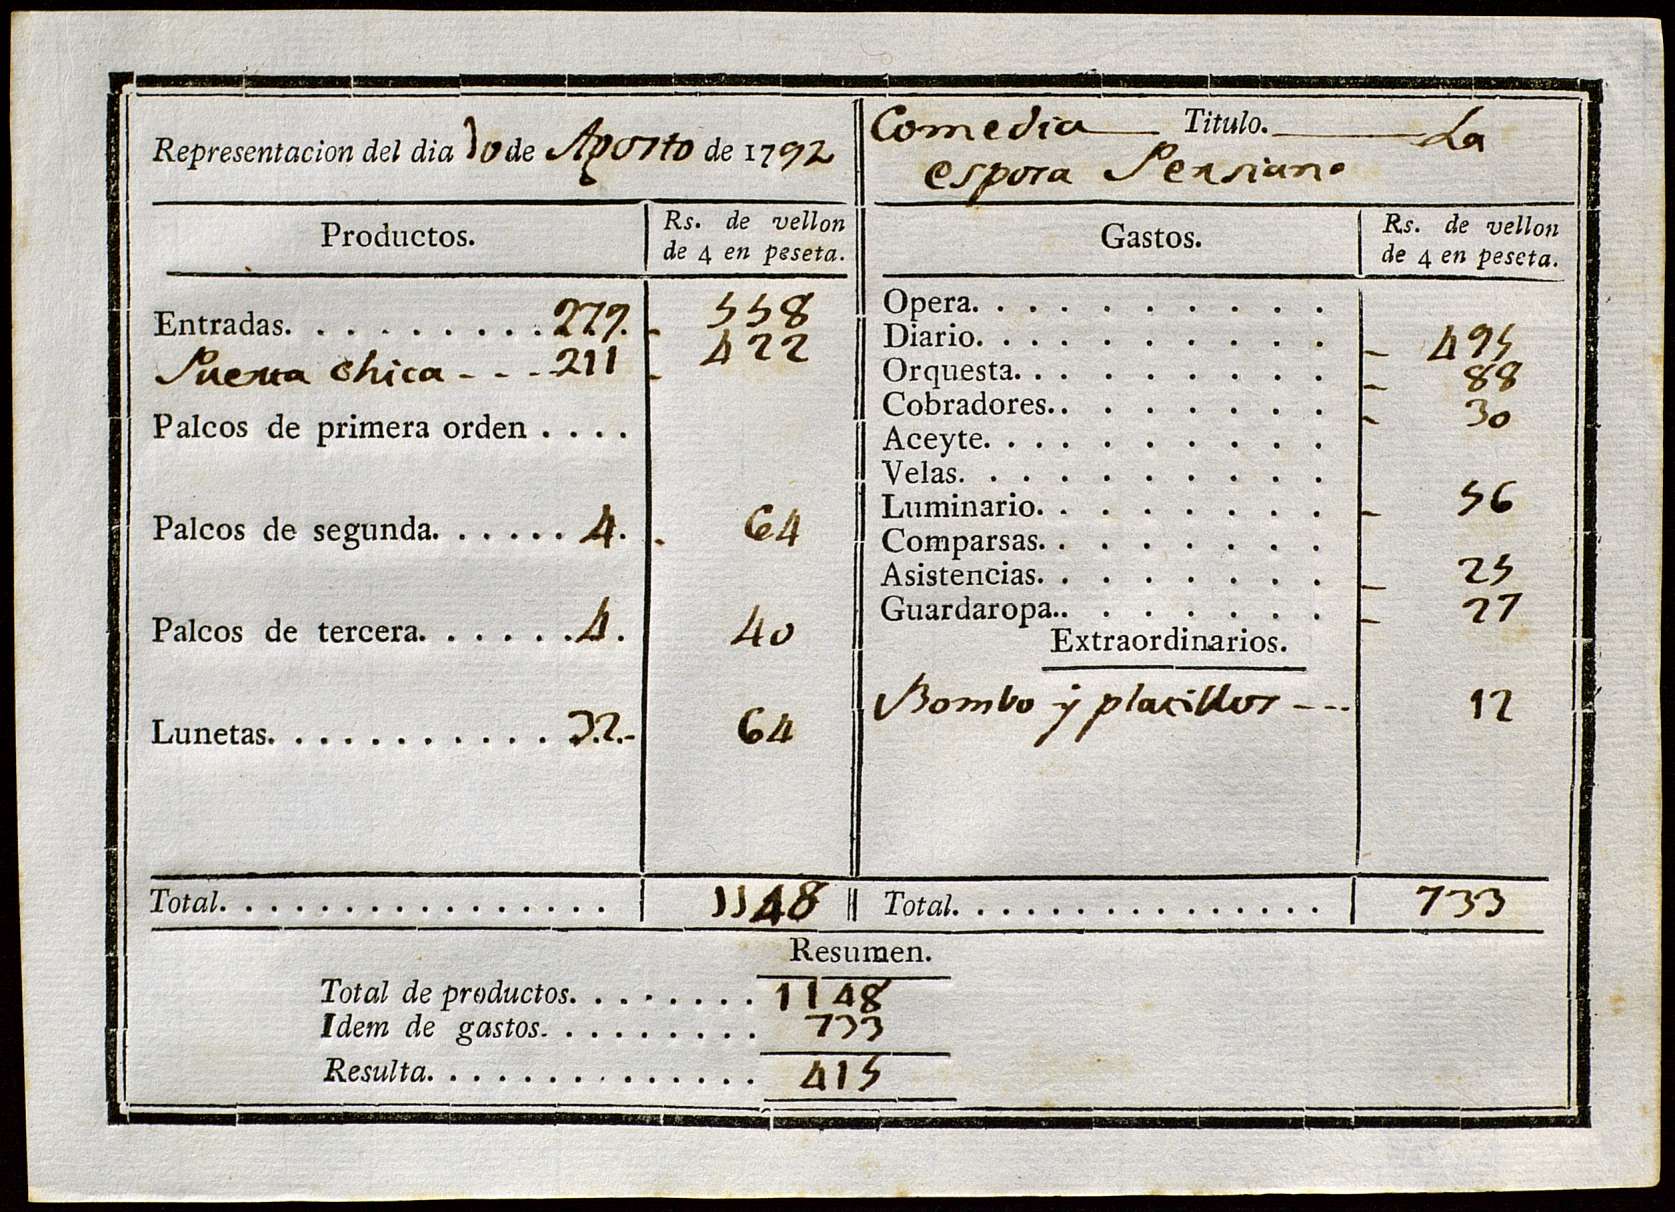 Representacion del dia 10 de Agosto de 1792
Comedia Titulo. La
esposa Persiana
Productos. Rs. de vellon
de 4 en peseta.
Entradas. . . . . . . . . . 279. 558
Puerta chica - - - 211 422
Palcos de primera orden . . . .
Palcos de segunda. . . . . . 4. 64
Palcos de tercera. . . . . . . 4. 40
Lunetas. . . . . . . . . . . . 32. 64
Total. . . . . . . . . . . . . . . . . 1148
Gastos. Rs. de vellon
de 4 en peseta.
Opera. . . . . . . . . .
Diario. . . . . . . . . . 495
Orquesta. . . . . . . . . 88
Cobradores. . . . . . . . 30
Aceyte. . . . . . . . . .
Velas. . . . . . . . . .
Luminario. . . . . . . . 56
Comparsas. . . . . . . .
Asistencias. . . . . . . . 25
Guardaropa. . . . . . . . 27
Extraordinarios.
Bombo y placillos - - - 12
Total. . . . . . . . . . . . . . . . 733
Resumen.
Total de productos. . . . . . . . 1148
Idem de gastos. . . . . . . . . 733
Resulta. . . . . . . . . . . . . . 415